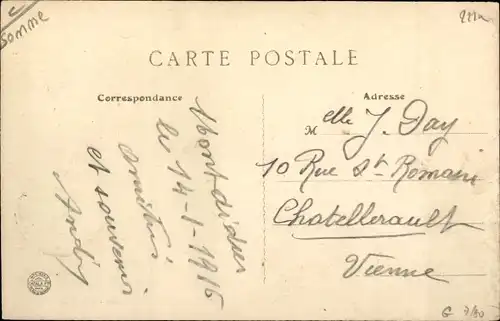 Somme
CARTE POSTALE
Correspondance
Adresse
Montdidier
le 14-1-1916
amitiés
et souvenir
André
Melle J. Day
10 Rue St Romain
Chatellerault
Vienne
G